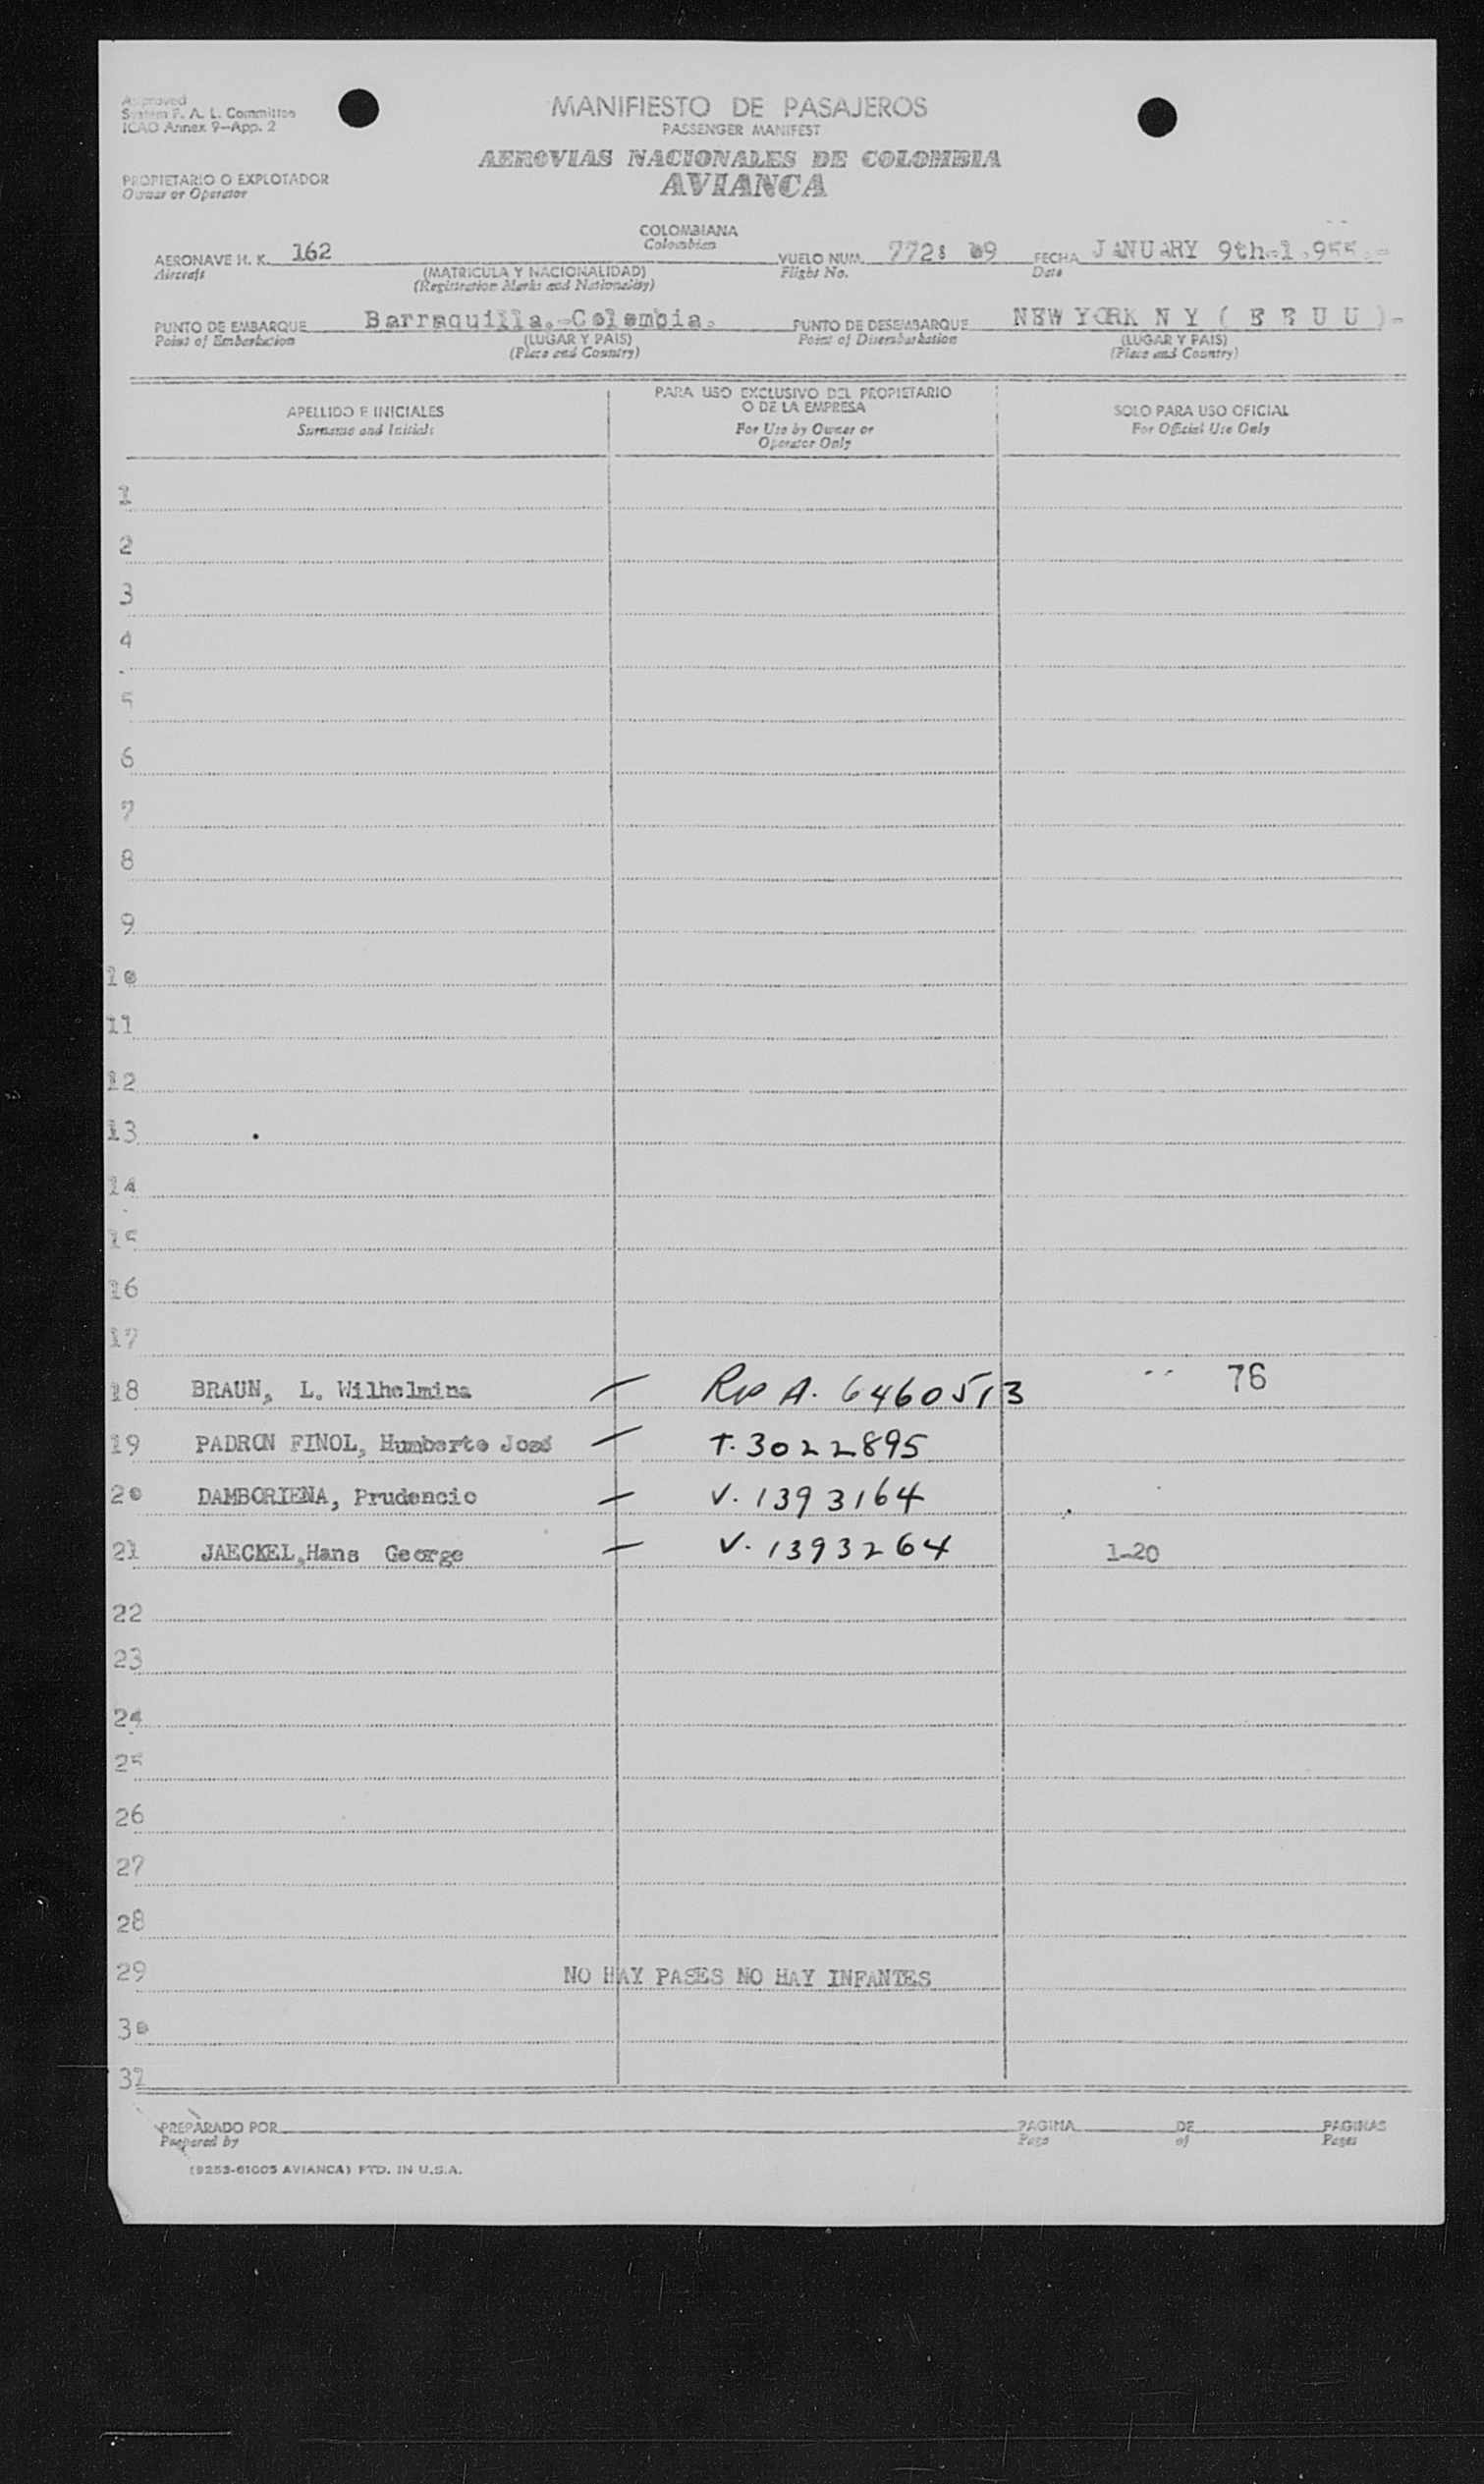 Approved
System F. A. L. Committee
ICAO Annex 9—App. 2
MANIFIESTO DE PASAJEROS
PASSENGER MANIFEST
AEROVIAS NACIONALES DE COLOMBIA
AVIANCA
PROPIETARIO O EXPLOTADOR
Owner or Operator
COLOMBIANA
Colombian
AERONAVE H. K. 162 VUELO NUM. FECHA JANUARY 9th.1.955.-
Aircraft (MATRICULA Y NACIONALIDAD) Flight No. Date
(Registration Marks and Nationality)
PUNTO DE EMBARQUE Barraquilla.-Colombia. PUNTO DE DESEMBARQUE NEW YORK N Y ( E E U U )-
Point of Embarkation (LUGAR Y PAIS) Point of Disembarkation (LUGAR Y PAIS)
(Place and Country) (Place and Country)
APELLIDO E INICIALES PARA USO EXCLUSIVO DEL PROPIETARIO SOLO PARA USO OFICIAL
Surname and Initials O DE LA EMPRESA For Official Use Only
For Use by Owner or
Operator Only
1
2
3
4
5
6
7
8
9
10
11
12
13
14
15
16
17
18 BRAUN, L. Wilhelmina — A. 6460513 76
19 PADRON FINOL, Humberto José — T. 3022895
20 DAMBORIENA, Prudencio — V. 1393164
21 JAECKEL,Hans George — V. 1393264 1-20
22
23
24
25
26
27
28
29 NO HAY PASES NO HAY INFANTES
30
32
PREPARADO POR PAGINA DE PAGINAS
Prepared by Page of Pages
(9253-61005 AVIANCA) PTD. IN U.S.A.